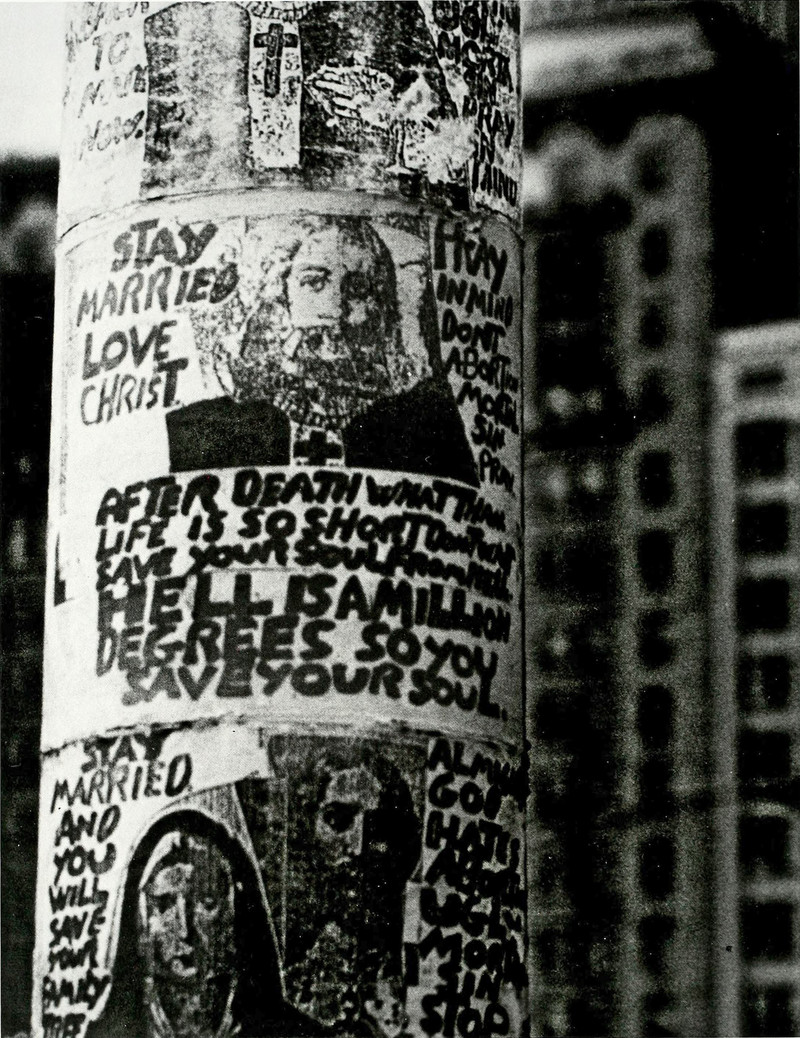 TO
NOW.
UGLY
MORTA
SIN
PRAY
IN
MIND
STAY
MARRIED
LOVE
CHRIST.
PRAY
IN MIND
DONT
ABORTION
MORTAL
SIN
PRAY
AFTER DEATH WHAT THAN
LIFE IS SO SHORT DONT WAIT
SAVE YOUR SOUL FROM HELL
HELL IS A MILLION
DEGREES SO YOU
SAVE YOUR SOUL.
STAY
MARRIED
AND
YOU
WILL
SAVE
YOUR
FAMILY
TREE
ALMI
GOD
HATES
ABORT
UGL
MORTA
SIN
STOP